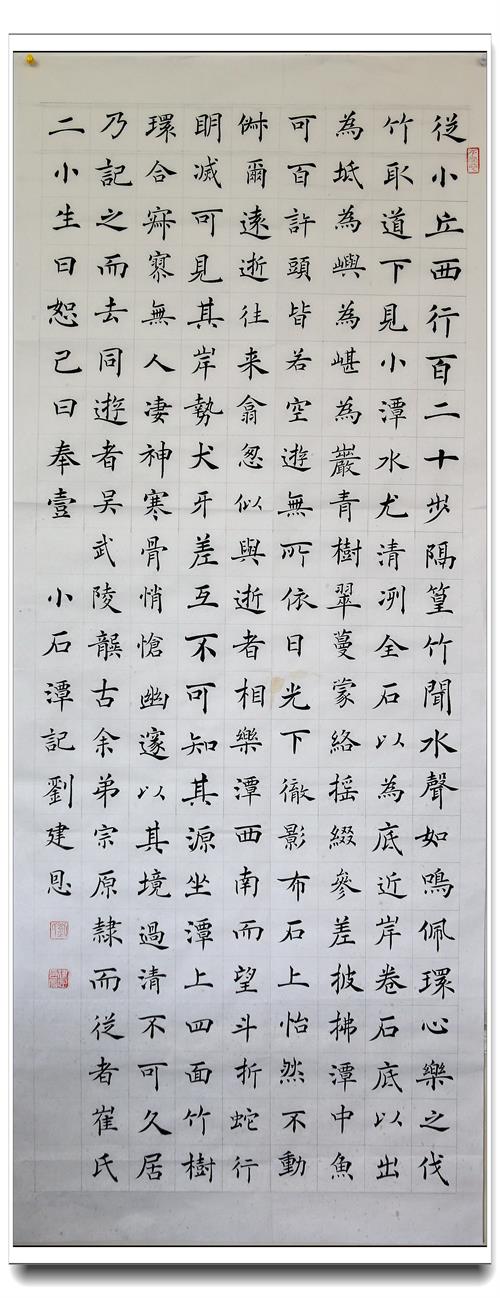 從小丘西行百二十步隔篁竹聞水聲如鳴佩環心樂之伐
竹取道下見小潭水尤清冽全石以為底近岸卷石底以出
為坻為嶼為嵁為巖青樹翠蔓蒙絡摇綴參差披拂潭中魚
可百許頭皆若空遊無所依日光下徹影布石上怡然不動
俶爾遠逝往来翕忽似與逝者相樂潭西南而望斗折蛇行
眀滅可見其岸勢犬牙差互不可知其源坐潭上四面竹樹
環合寂寥無人凄神寒骨悄愴幽邃以其境過清不可久居
乃記之而去同遊者吴武陵龔古余弟宗原隸而從者崔氏
二小生曰恕己曰奉壹 小石潭記劉建恩